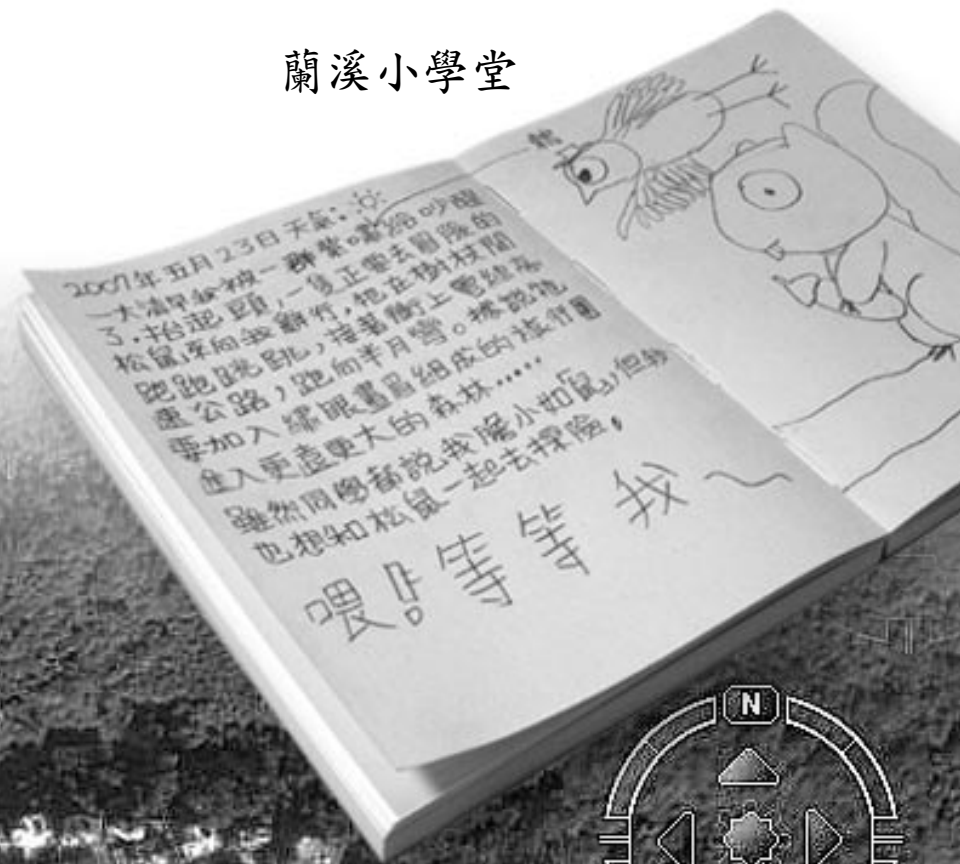 蘭溪小學堂
2007年五月23日天氣:
一大清早我被一群繁嘍給吵醒
了,抬起頭,一隻正要去冒險的
松鼠來向我辭行,牠在樹枝間
跑跑跳跳,接著衝上雪線高
速公路,跑向半月彎。據說牠
要加入繡眼畫眉組成的旅行團
進入更遠更大的森林.....
雖然同學都說我膽小如「鼠」,但我
也想和松鼠一起去探險。
喂!等等我~
N